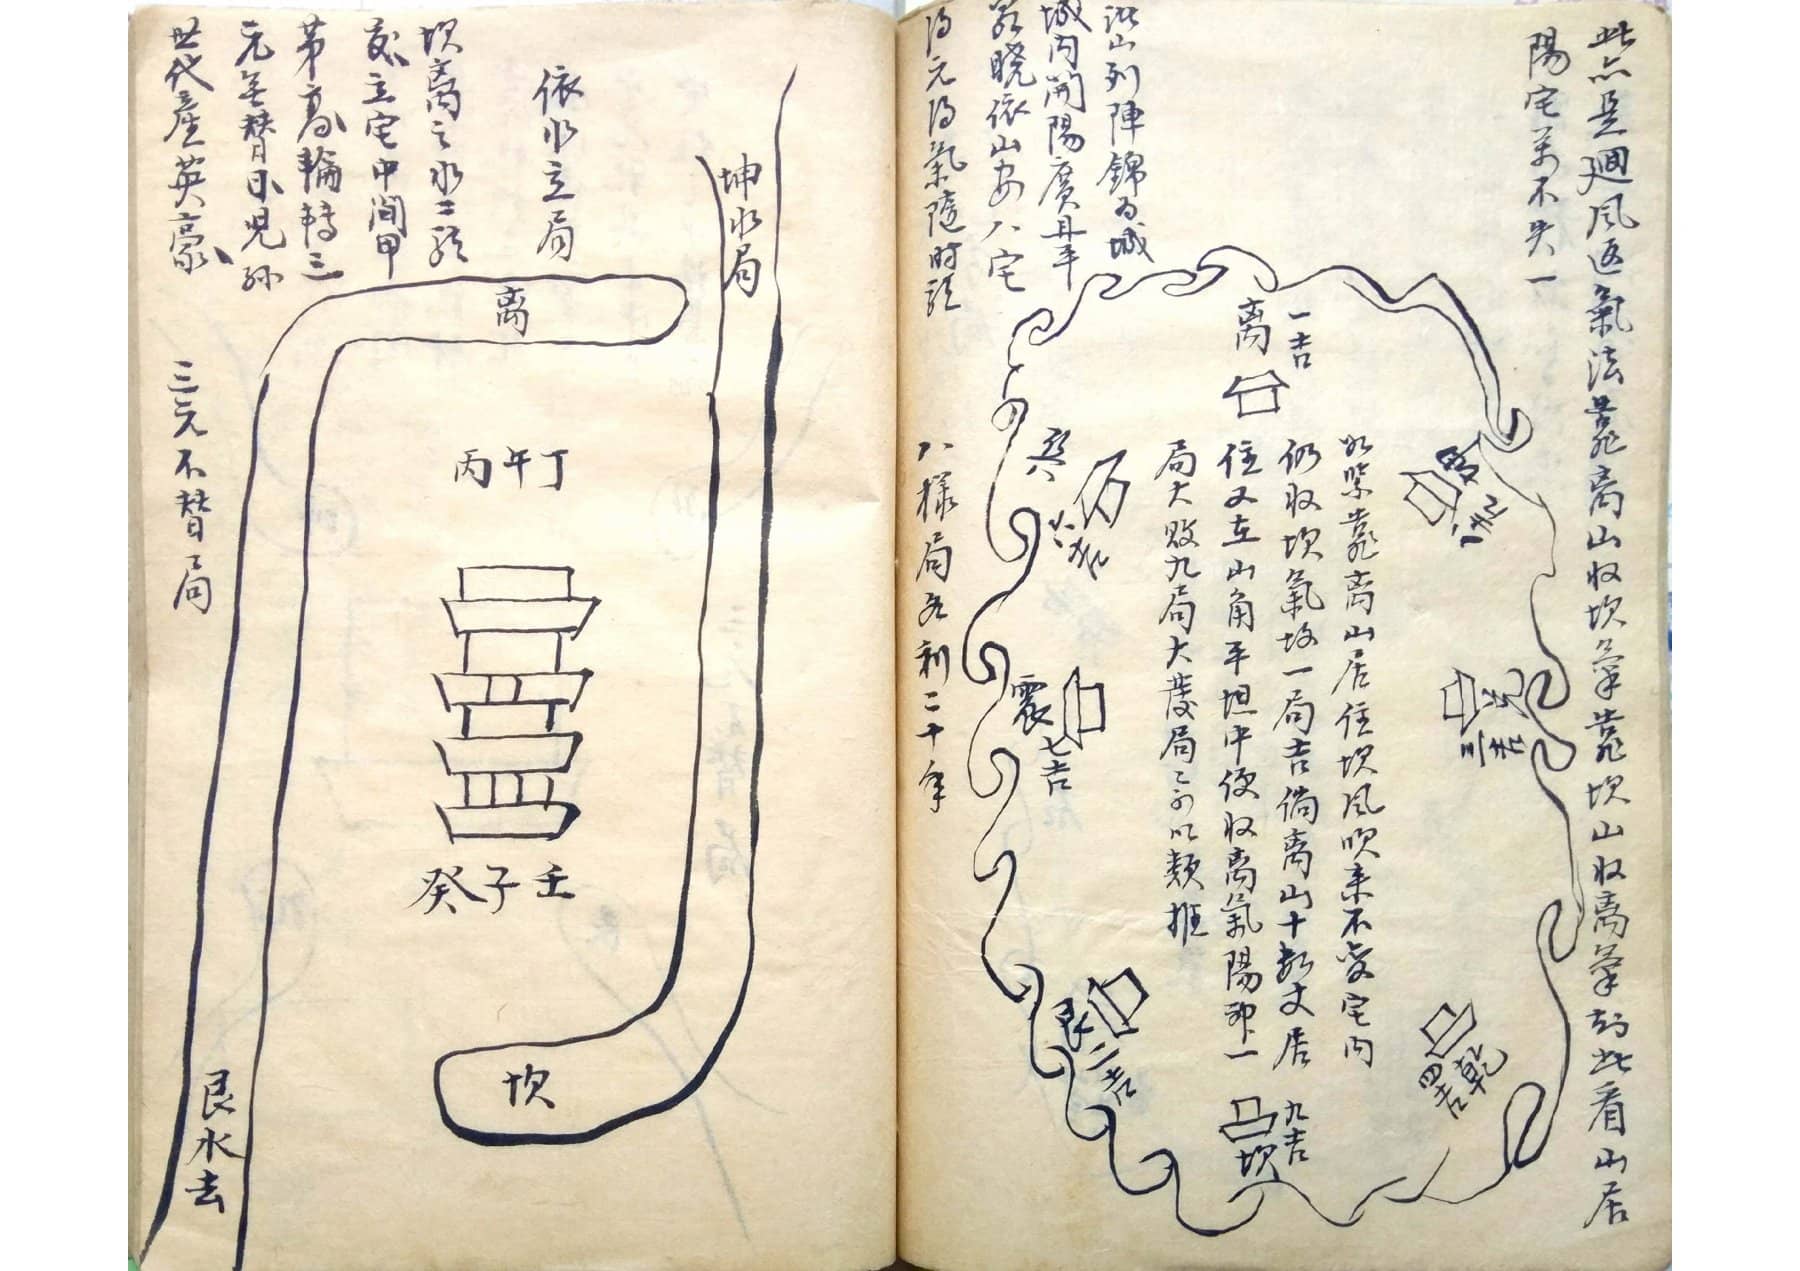 此亦是廻風返氣法靠离山收坎氣靠坎山收离氣切此看山居
陽宅萬不失一
此山列陣錦為城
城内開陽廣且平
若曉依山安八宅
得元得氣隨時
八樣局各利二十年
离
一吉
坤
八吉
兌
三吉
乾
四吉
坎
九吉
艮
二吉
震
七吉
巽
六吉
如緊靠离山居住坎風吹来不受宅内
仍收坎氣故一局吉倘离山十數丈居
住又在山角平坦中便收离氣陽卽一
局大敗九局大發局之可以類推
依水立局
坤水局
坎离之水二
立宅中間甲
第高輪轉三
元无替日兒孫
世代產英豪
三元不替局
离
丙午丁
癸子壬
坎
艮水去